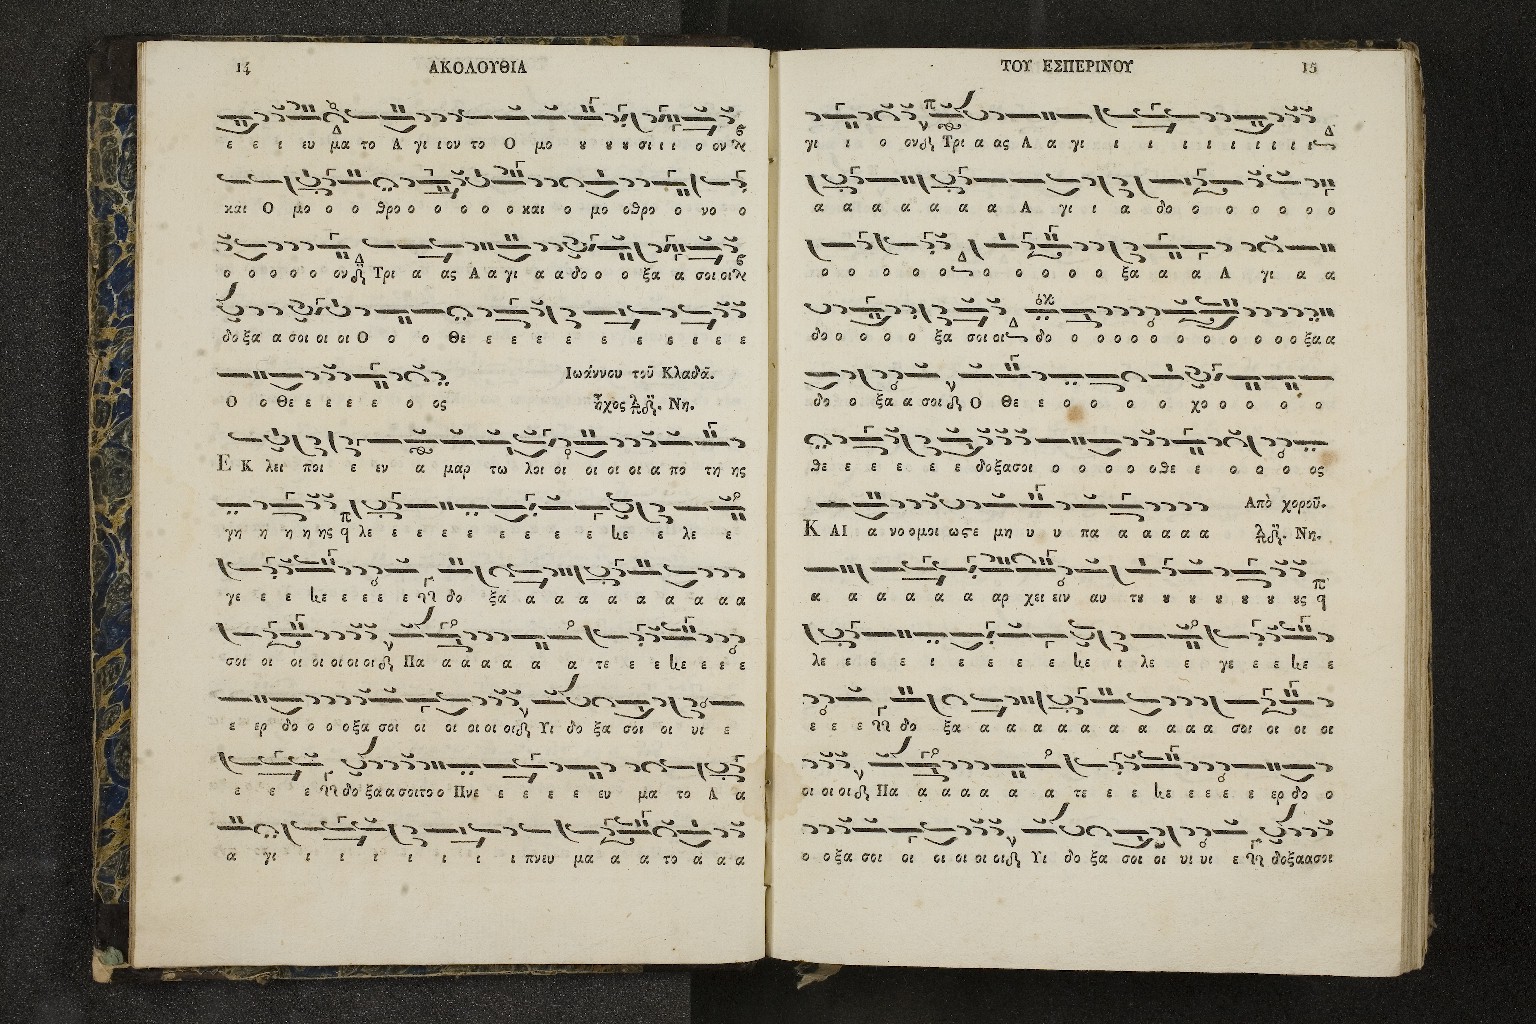 14 ΑΚΟΛΟΥΘΙΑ
ε ε ι ευ μα το Α γι ι ον το Ο μο ȣ ȣ ȣ σι ι ι ο ον
και Ο μο ο ο θρο ο ο ο ο ο και ο μο οθρο ο νο ο
ο ο ο ο ο ον Τρι α ας Α α γι α α δο ο ο ξα α σοι οι
δο ξα α σοι οι οι Ο ο ο Θε ε ε ε ε ε ε ε ε ε ε
Ιωάννου τοῦ Κλαδᾶ.
Ο ο Θε ε ε ε ε ο ος ἦχος λ π δ. Νη.
Ε Κ λει ποι ε εν α μαρ τω λοι οι οι οι οι α πο τη ης
γη η η η ης q λε ε ε ε ε ε ε ε ε ε με ε λε ε
γε ε ε με ε ε ε ε δο ξα α α α α α α α α α
σοι οι οι οι οι οι οι Πα α α α α α α τε ε ε με ε ε ε
ε ερ δο ο ο οξα σοι οι οι οι οι οι Υι δο ξα σοι οι υι ε
ε ε ε δο ξα α σοιτο ο Πνε ε ε ε ε ευ μα το Α α
α γι ι ι ι ι ι ι ι ι πνευ μα α α το α α α
ΤΟΥ ΕΣΠΕΡΙΝΟΥ 15
γι ι ο ον Τρι α ας Α α γι ι ι ι ι ι ι ι
α α α α α α α Α γι ι α δο ο ο ο ο ο ο
ο ο ο ο ο ο ο ο ο ο ξα α α Α γι α α
δο ο ο ο ο ξα σοι οι δο ο ο ο ο ο ο ο ο ο ο ο ξα α
δο ο ξα α σοι Ο Θε ε ο ο ο ο χο ο ο ο ο
θε ε ε ε ε ε δοξασοι ο ο ο ο οθε ε ο ο ο ος
Απὸ χοροῦ.
Κ ΑΙ α νο ομοι ωςε μη υ υ πα α α α α α λ π δ. Νη.
α α α α α α αρ χει ειν αυ τȣ ȣ ȣ ȣ ȣ ȣ ȣς q
λε ε ε ε ι ε ε ε ε με ι λε ε γε ε ε με ε
ε ε ε δο ξα α α α α α α α α α σοι οι οι οι
οι οι οι Πα α α α α α α τε ε ε με ε ε ε ε ερ δο ο
ο ο ξα σοι οι οι οι οι οι Υι δο ξα σοι οι υι υι ε δοξαασοι